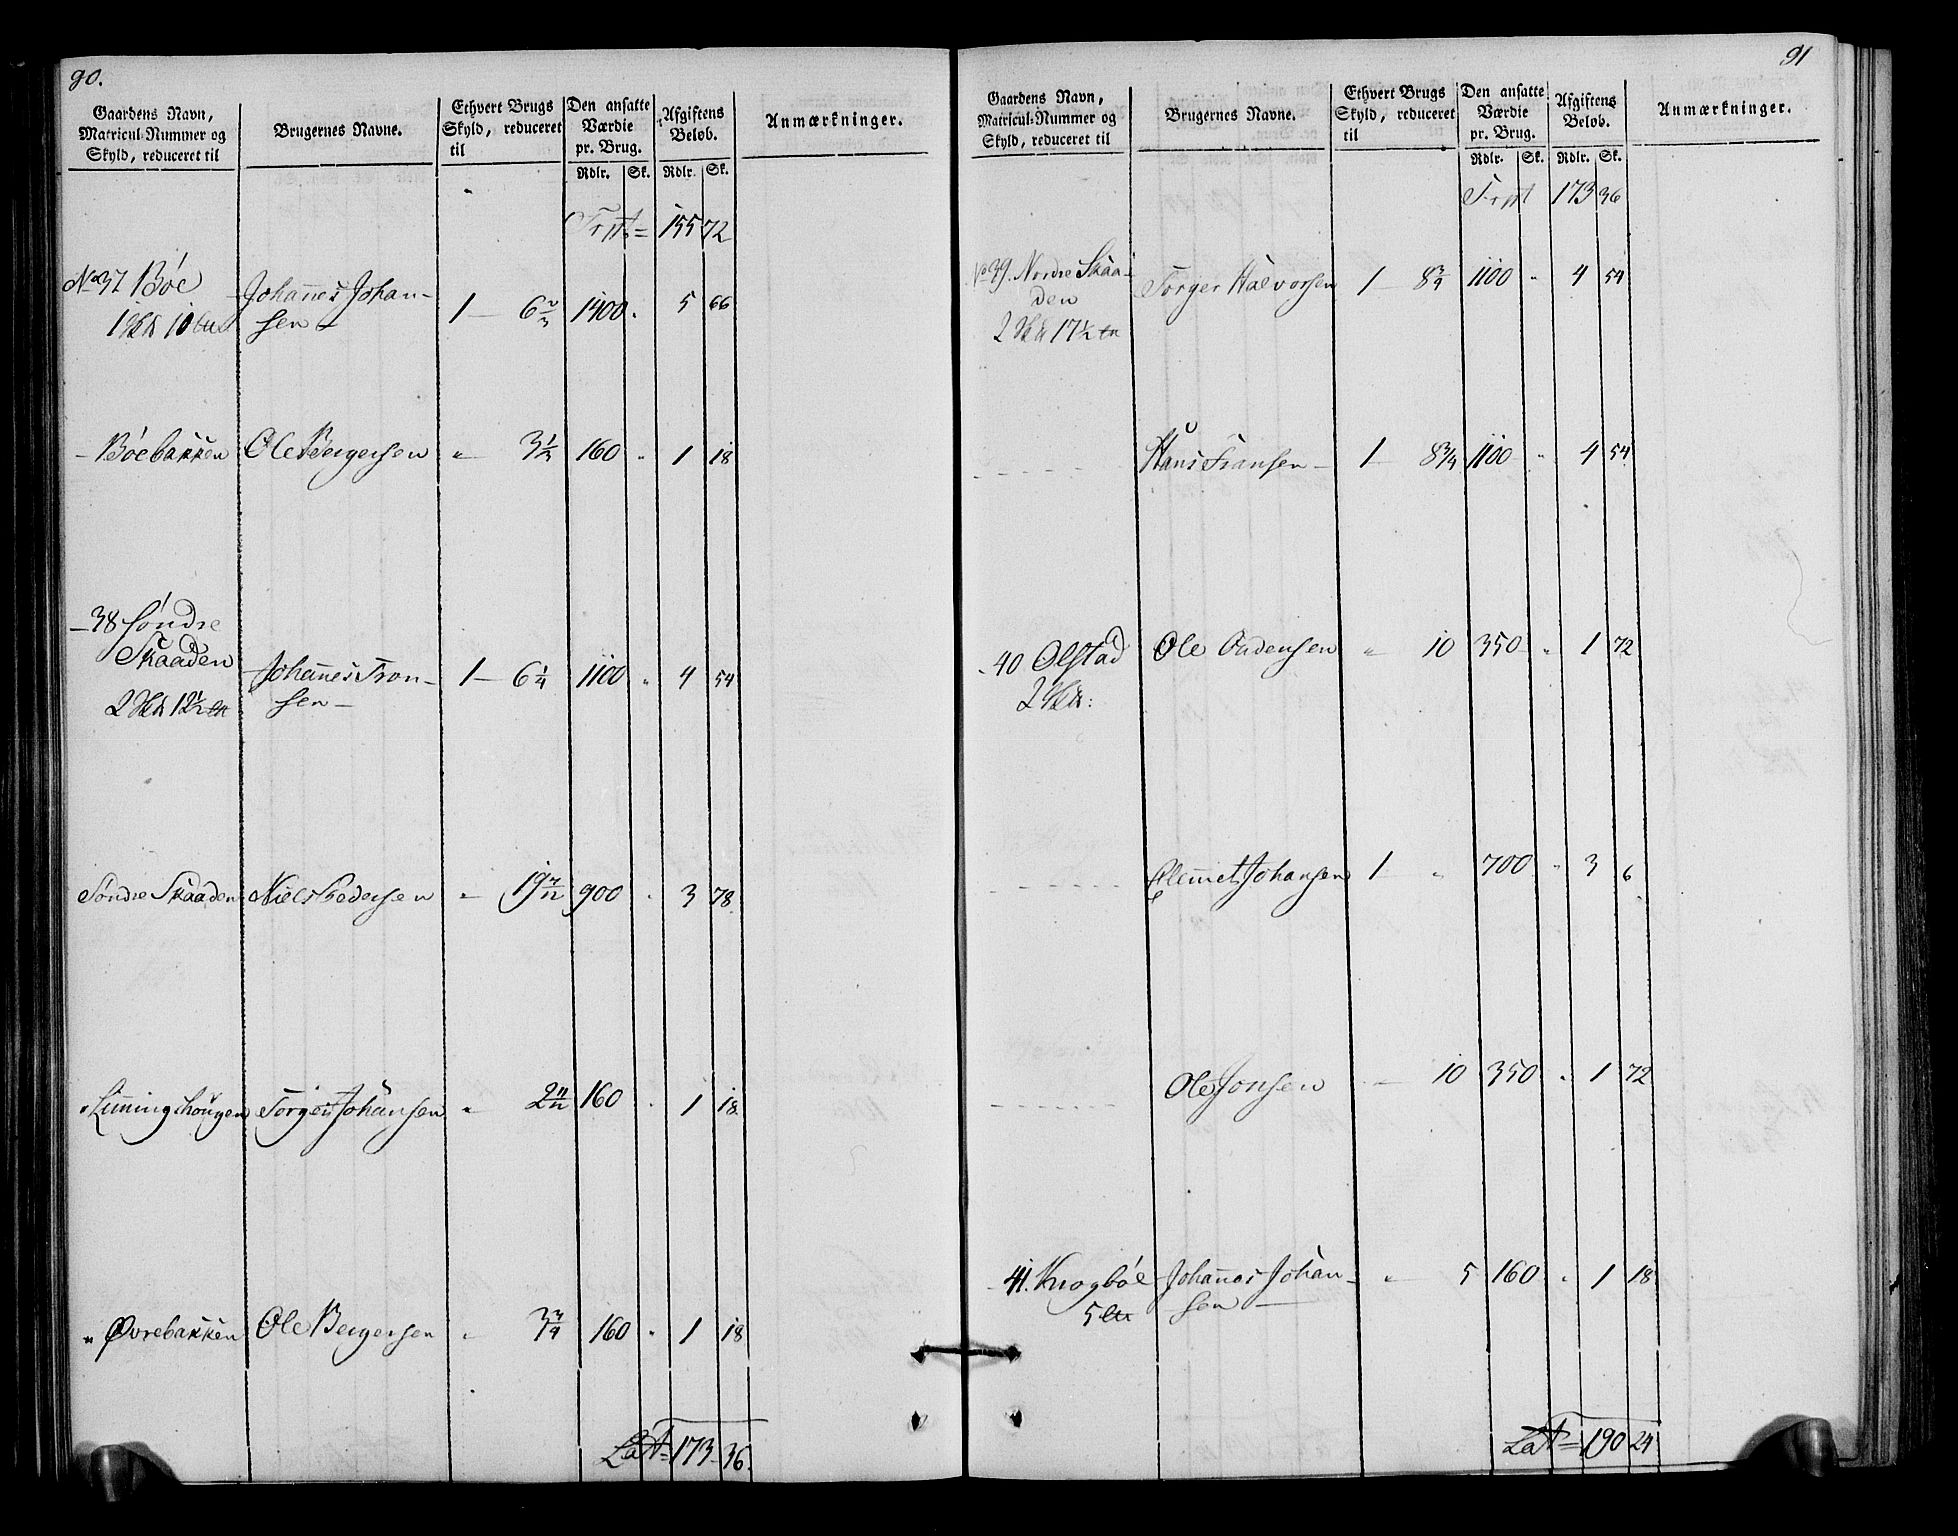 90.
Gaardens Navn, Matricul-Nummer og Skyld, reduceret til | Brugernes Navne. | Ethvert Brugs Skyld, reduceret til | Den ansatte Værdie pr. Brug. Rdlr. Sk. | Afgiftens Beløb. Rdlr. Sk. | Anmærkninger.
155 72
No 37 Bøe Johannes Johan- 1 — 6 2/3 1400 . 5 66
sen —
— Bøebakken Ole Bergersen „ 3 1/3 160 „ 1 18
— 38 Søndre
Skaaden Johannes Tron- 1 — 6 1/4 1100 „ 4 54
sen —
Søndre Skaaden Niels Pedersen „ 19 7/12 900 „ 3 78
Torger Johansen „ 2 11/12 160 „ 1 18
„ Øvrebakken Ole Bergersen „ 3 3/4 160 „ 1 18
Lat = 173 36.
91
Gaardens Navn, Matricul-Nummer og Skyld, reduceret til | Brugernes Navne. | Ethvert Brugs Skyld, reduceret til | Den ansatte Værdie pr. Brug. Rdlr. Sk. | Afgiftens Beløb. Rdlr. Sk. | Anmærkninger.
173 36
No 39. Nordre Skaa- Torger Halvorsen 1 — 8 3/4 1100 „ 4 54
den
Hans Fransen — 1 — 8 3/4 1100 „ 4 54
- 40 Olstad Ole 10 350 „ 1 72
Clemmet Johansen 1 „ 700 „ 3 6
Ole Jonsen — 10 350 „ 1 72
- 41. Krogbøe Johannes Johan- „ 5 160 „ 1 18
sen —
Lat = 190 24